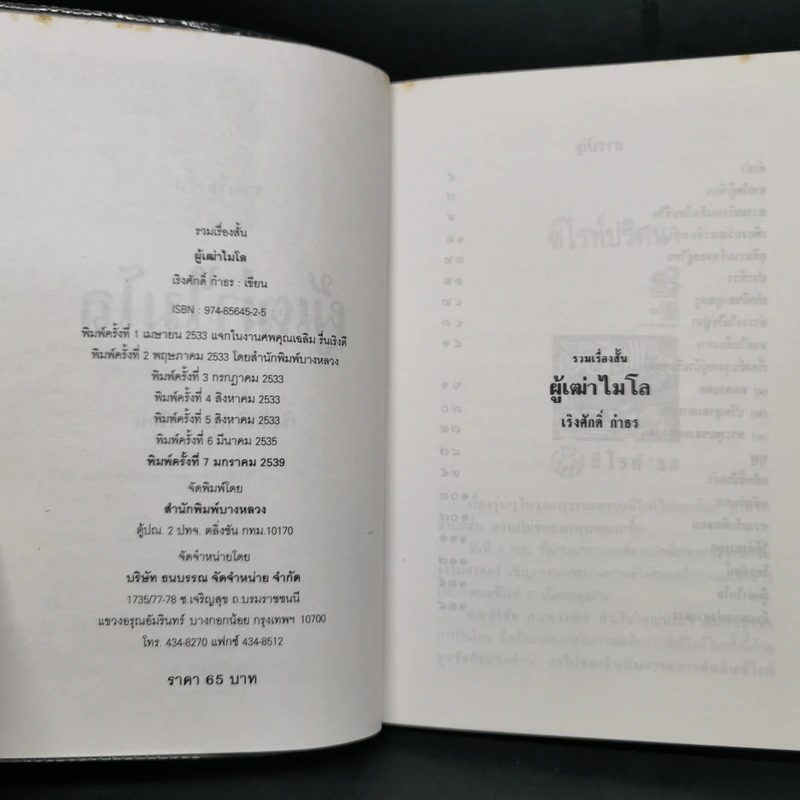 รวมเรื่องสั้น
ผู้เฒ่าไมโล
เริงศักดิ์ กำธร : เขียน
ISBN : 974-85645-2-5
พิมพ์ครั้งที่ 1 เมษายน 2533 แจกในงานศพคุณเฉลิม รื่นเริงดี
พิมพ์ครั้งที่ 2 พฤษภาคม 2533 โดยสำนักพิมพ์บางหลวง
พิมพ์ครั้งที่ 3 กรกฎาคม 2533
พิมพ์ครั้งที่ 4 สิงหาคม 2533
พิมพ์ครั้งที่ 5 สิงหาคม 2533
พิมพ์ครั้งที่ 6 มีนาคม 2535
พิมพ์ครั้งที่ 7 มกราคม 2539
จัดพิมพ์โดย
สำนักพิมพ์บางหลวง
ตู้ปณ. 2 ปทจ. ตลิ่งชัน กทม.10170
จัดจำหน่ายโดย
บริษัท ธนบรรณ จัดจำหน่าย จำกัด
1735/77-78 ซ.เจริญสุข ถ.บรมราชชนนี
แขวงอรุณอัมรินทร์ บางกอกน้อย กรุงเทพฯ 10700
โทร. 434-8270 แฟกซ์ 434-8512
ราคา 65 บาท
รวมเรื่องสั้น
ผู้เฒ่าไมโล
เริงศักดิ์ กำธร